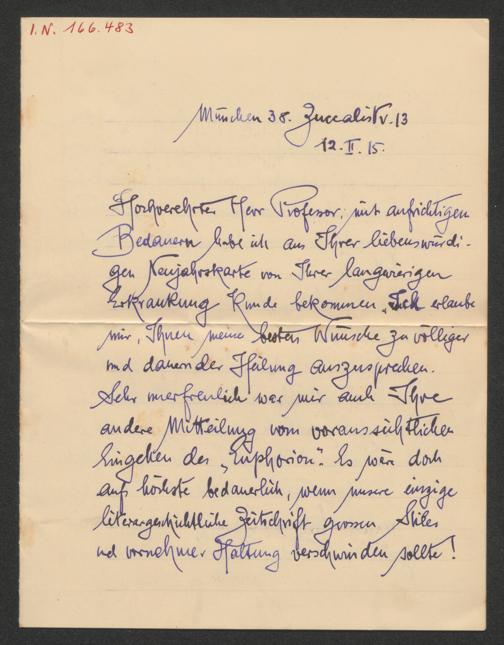 I.N. 166.483
München 38. Zuccalistr. 13
12. II. 15.
Hochverehrter Herr Professor, mit aufrichtigen
Bedauern habe ich aus Ihrer liebenswürdi-
gen Neujahrskarte von Ihrer langwierigen
Erkrankung Kunde bekommen. Ich erlaube
mir, Ihnen meine besten Wünsche zu völliger
und dauernder Heilung auszusprechen.
Sehr unerfreulich war mir auch Ihre
andere Mitteilung vom voraussichtlichen
Eingehen des „Euphorion“. Es wäre doch
aufs höchste bedauerlich, wenn unsere einzige
literargeschichtliche Zeitschrift grossen Stiles
und vornehmer Haltung verschwinden sollte!